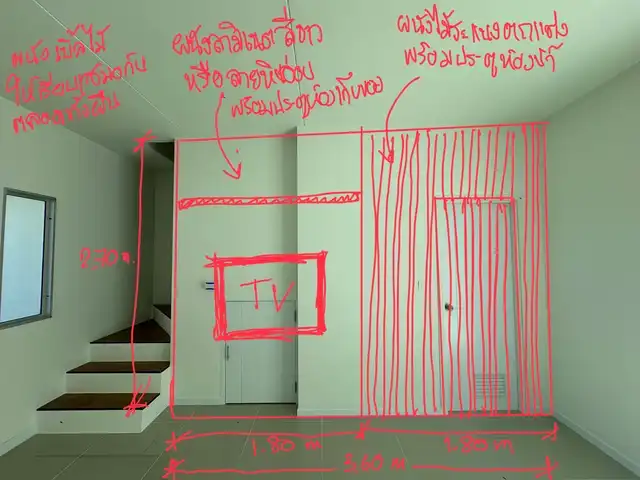 ผนังเบิ้ลไม้
ให้เสมอ
ผนังลามิเนต สีขาว
หรือ ลายหินอ่อน
พร้อมประตูห้องเก็บของ
ผนังไม้ระแนงตกแต่ง
พร้อมประตูห้องน้ำ
2.70 m.
TV
1.80 m
1.80 m
3.60 m